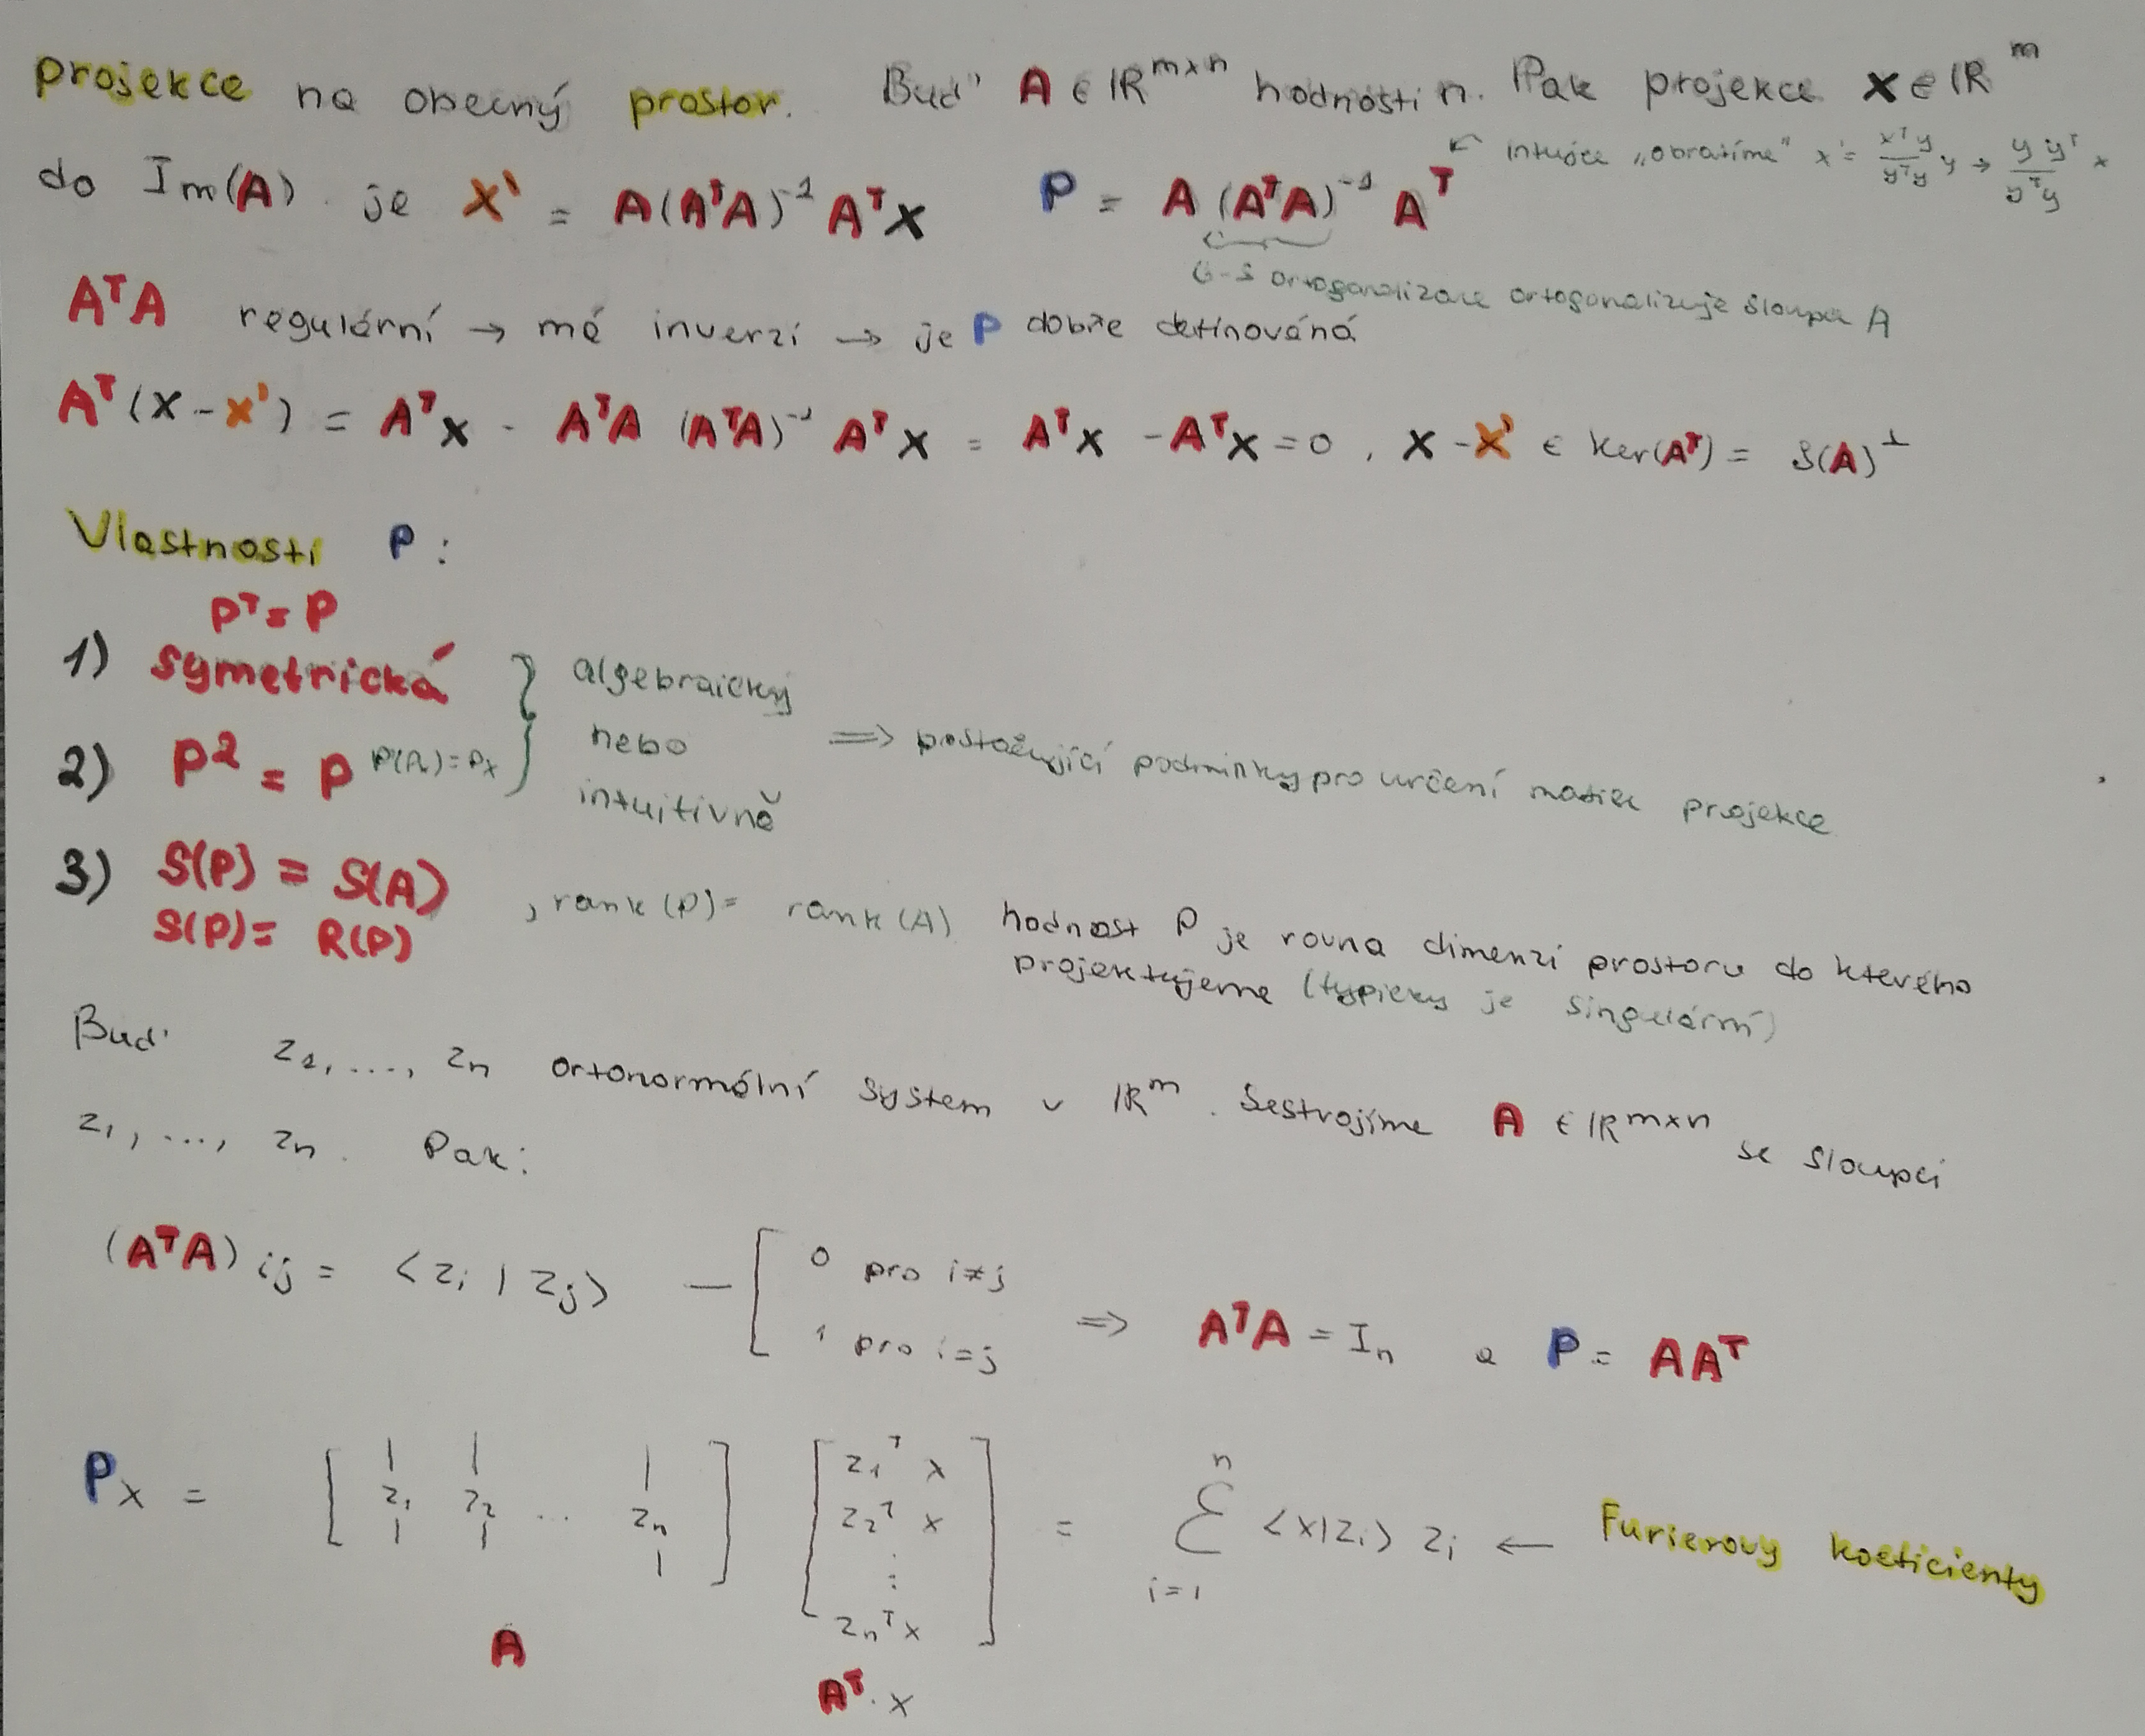 projekce na obecný prostor. Buď A ∈ ℝ^{m×n} hodnosti n. Pak projekce x ∈ ℝ^m
← intuice „obratíme" x' = \frac{x^T y}{y^T y} y → \frac{y y^T}{y^T y} x
do Im(A). je x' = A(A^TA)^{-1} A^T x   P = A (A^TA)^{-1} A^T
G-S ortogonalizace ortogonalizuje sloupce A
A^TA regulární → má inverzi → je P dobře definováná
A^T(x-x') = A^Tx - A^TA (A^TA)^{-1} A^T x = A^Tx - A^Tx = 0, x-x' ∈ Ker(A^T) = S(A)^⊥
Vlastnosti P:
P^T = P
1) symetrická } algebraicky
2) P² = P P(Px) = Px } nebo ⇒ postačující podmínky pro určení matice projekce
intuitivně
3) S(P) = S(A) , rank(P) = rank(A) hodnost P je rovna dimenzi prostoru do kterého
S(P) = R(P) projektujeme (typicky je singulární)
Buď z_1, ..., z_n ortonormální system v ℝ^m. Sestrojíme A ∈ ℝ^{m×n} se sloupci
z_1, ..., z_n. Pak:
(A^TA)_{ij} = <z_i | z_j> — [ 0 pro i≠j
1 pro i=j ⇒ A^TA = I_n a P = AA^T
Px = [ z_1 z_2 ... z_n ] [ z_1^T x
z_2^T x
⋮
z_n^T x ] = Σ_{i=1}^{n} <x|z_i> z_i ← Furierovy koeficienty
A
A^T · x